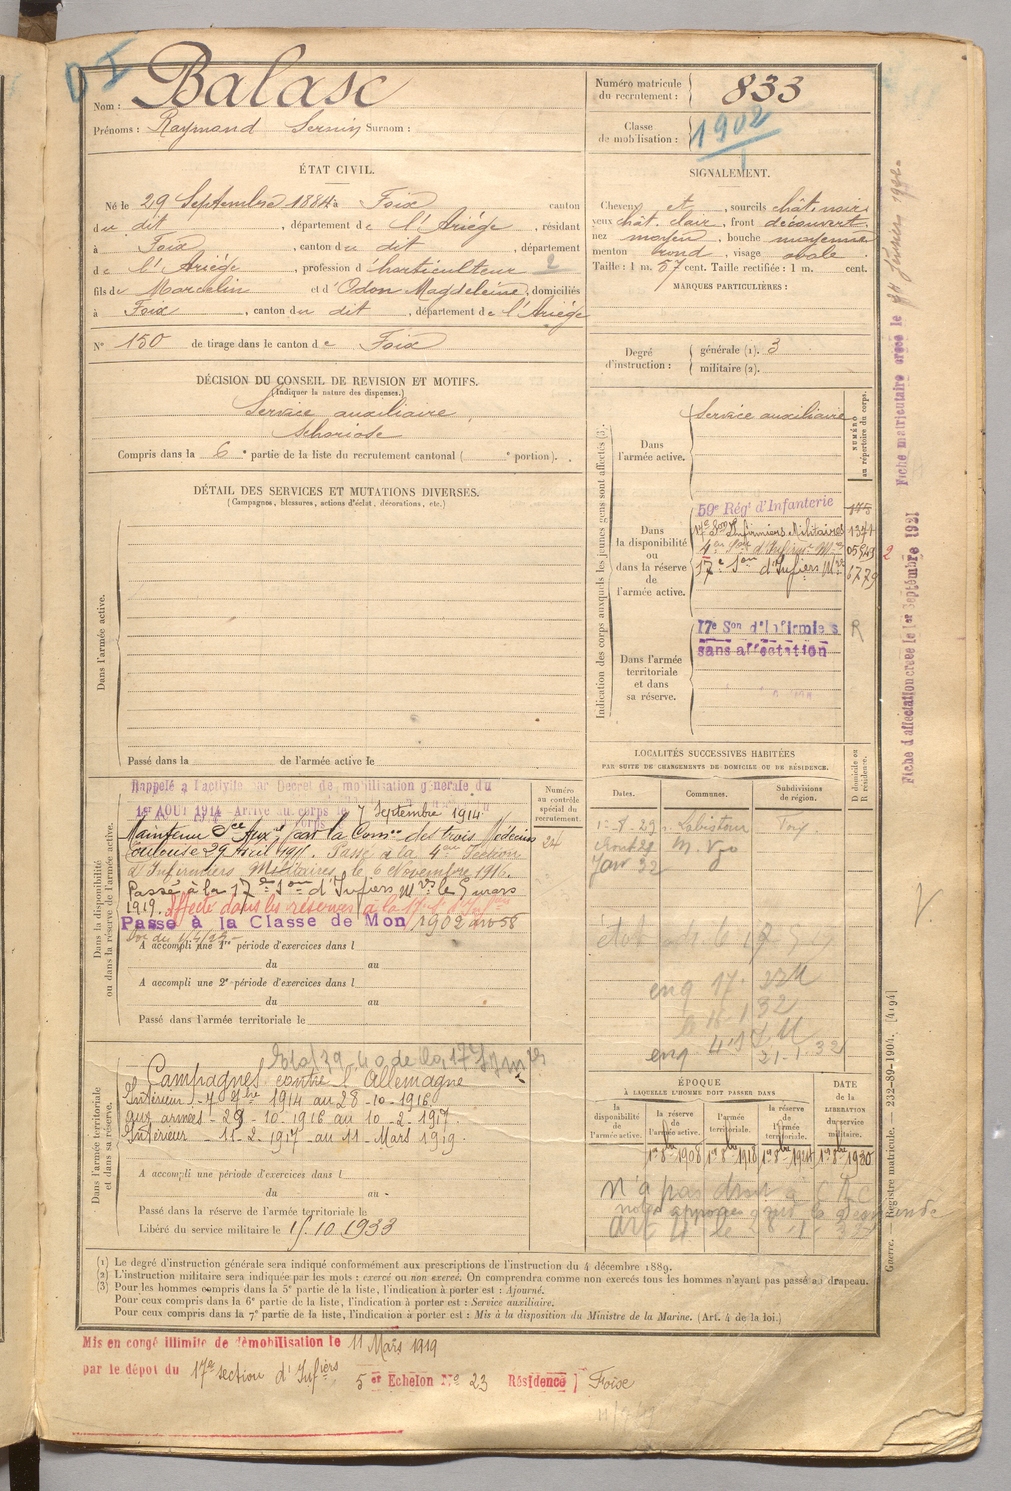 Nom : Balasc
Prénoms : Raymond Sernin Surnom :
Numéro matricule du recrutement : 833
Classe de mobilisation : 1902
ÉTAT CIVIL.
Né le 29 Septembre 1884 à Foix canton
du dit, département de l'Ariége, résidant
à Foix, canton du dit, département
de l'Ariége, profession d'horticulteur 2
fils de Marcelin et d'Odon Magdeleine, domiciliés
à Foix, canton du dit, département de l'Ariége
N° 150 de tirage dans le canton de Foix
SIGNALEMENT.
Cheveux et, sourcils chât. noir
yeux chât. clair, front découvert
nez moyen, bouche moyenne
menton rond, visage ovale.
Taille : 1 m. 57 cent. Taille rectifiée : 1 m. cent.
MARQUES PARTICULIÈRES :
Degré d'instruction : générale (1). 3
militaire (2).
DÉCISION DU CONSEIL DE REVISION ET MOTIFS.
(Indiquer la nature des dispenses.)
Service auxiliaire
Compris dans la 6e partie de la liste du recrutement cantonal ( e portion).
DÉTAIL DES SERVICES ET MUTATIONS DIVERSES.
(Campagnes, blessures, actions d'éclat, décorations, etc.)
Dans l'armée active.
Passé dans la de l'armée active le
Indication des corps auxquels les jeunes gens sont affectés (3).
NUMÉRO au répertoire du corps.
Dans l'armée active.
Service auxiliaire
Dans la disponibilité ou dans la réserve de l'armée active.
59e Rég' d'Infanterie
17e Son Infirmiers Militaires 1371
17e Son d'Infiers Mres 6779
Dans l'armée territoriale et dans sa réserve.
17e Son d'Infirmiers R
sans affectation
Fiche matriculaire créée le Février 192
Fiche d'affectation créée le 1er Septembre 1921
Dans la disponibilité ou dans la réserve de l'armée active.
Numéro au contrôle spécial du recrutement.
24
Rappelé à l'activité par Décret de mobilisation générale du
1er AOUT 1914 Arrivé au corps le 7 Septembre 1914
Maintenu Sce Auxre par la Comon des trois Médecins
Toulouse 29 Avril 1916. Passé à la 4me Section
d'Infirmiers Militaires, le 6 Novembre 1916.
Passé à la 17e Son d'Infiers Mres le 5 mars
1919. Affecté dans les réserves à la 17e S.
Passé à la Classe de Mon 1902 art 58
A accompli une 1re période d'exercices dans l
du au
A accompli une 2e période d'exercices dans l
du au
Passé dans l'armée territoriale le
LOCALITÉS SUCCESSIVES HABITÉES
PAR SUITE DE CHANGEMENTS DE DOMICILE OU DE RÉSIDENCE.
Dates. Communes. Subdivisions de région. D domicile ou R résidence.
Dans l'armée territoriale et dans sa réserve.
Campagnes contre l'Allemagne
Intérieur - 7 7bre 1914 au 28-10-1916
aux armées - 29-10-1916 au 10-2-1917.
Intérieur - 11-2-1917 - au 11-Mars 1919.
A accompli une période d'exercices dans l
du au
Passé dans la réserve de l'armée territoriale le
Libéré du service militaire le 15.10.1933
ÉPOQUE
À LAQUELLE L'HOMME DOIT PASSER DANS
DATE de la LIBÉRATION du service militaire.
la disponibilité de l'armée active.
la réserve de l'armée active.
l'armée territoriale.
la réserve de l'armée territoriale.
1er 8bre 1908 1er 8bre 1918 1er 8bre 1924 1er 8bre 1930
n'a pas droit à
Guerre. — Registre matricule. — 232-89-1904. [4194]
(1) Le degré d'instruction générale sera indiqué conformément aux prescriptions de l'instruction du 4 décembre 1889.
(2) L'instruction militaire sera indiquée par les mots : exercé ou non exercé. On comprendra comme non exercés tous les hommes n'ayant pas passé au drapeau.
(3) Pour les hommes compris dans la 5e partie de la liste, l'indication à porter est : Ajourné.
Pour ceux compris dans la 6e partie de la liste, l'indication à porter est : Service auxiliaire.
Pour ceux compris dans la 7e partie de la liste, l'indication à porter est : Mis à la disposition du Ministre de la Marine. (Art. 4 de la loi.)
Mis en congé illimité de démobilisation le 11 Mars 1919
par le dépôt du 17e section d'Infiers 5 er Echelon N° 23 Résidence Foix